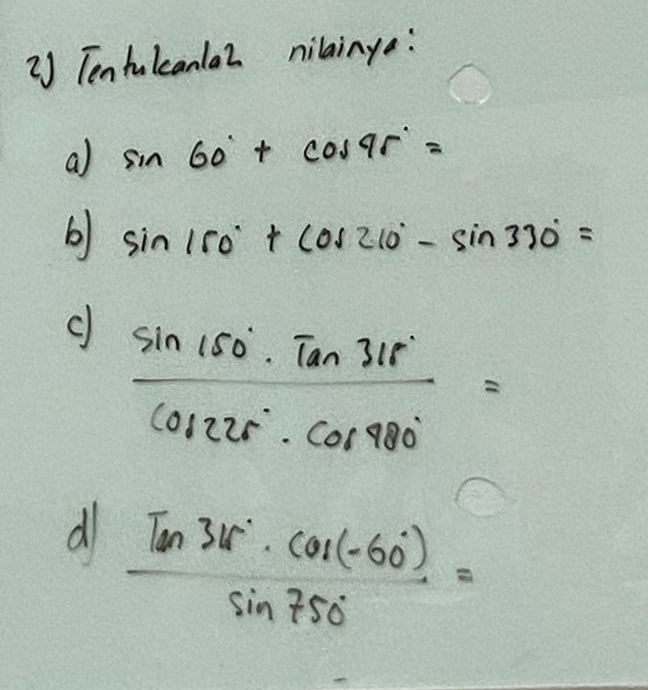 2) Tentukanlah nilainya:
a) sin 60° + cos 45° =
b) sin 150° + cos 210° - sin 330° =
c) sin 150° . Tan 315°
=
cos 225° . cos 480°
d) Tan 315° . cos(-60°)
=
sin 750°